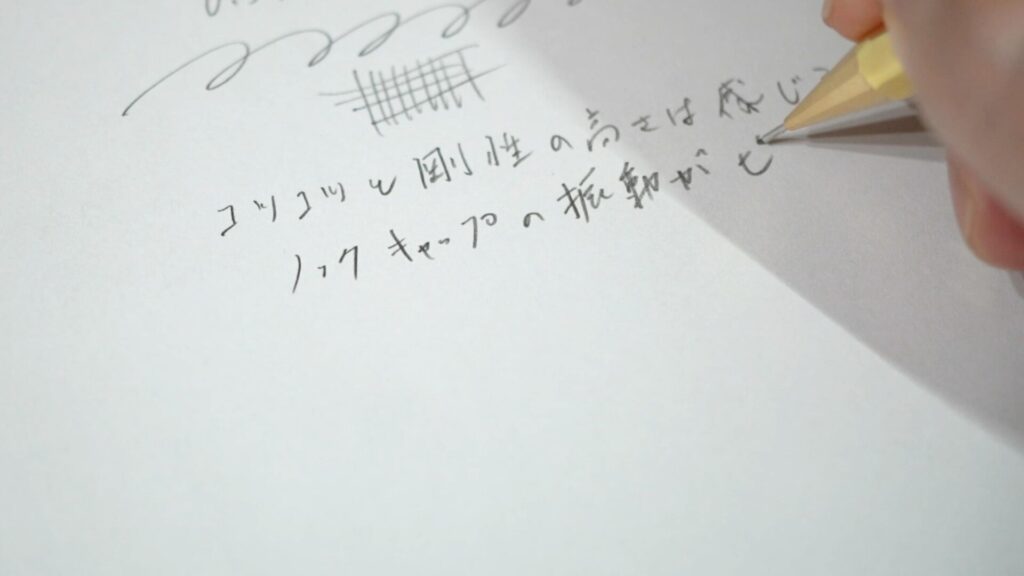 コツコツと剛性の高さは感じ
ノックキャップの振動が